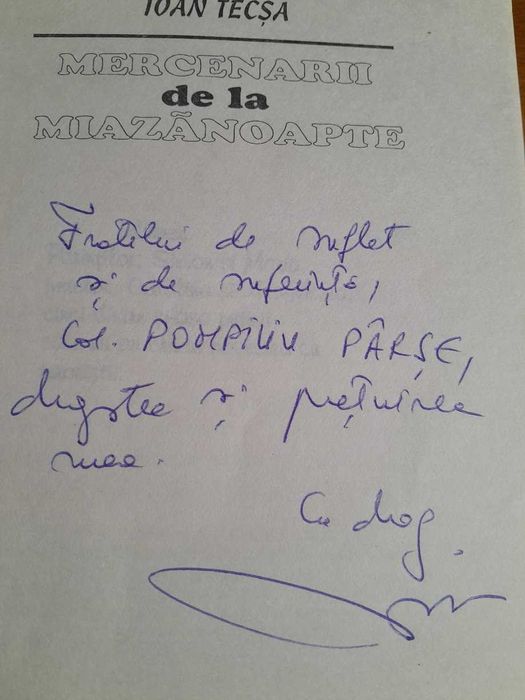 IOAN TECȘA
MERCENARII
de la
MIAZĂNOAPTE
Fratelui de suflet
și de suferință,
Col. POMPILIU PÂRȘE,
dragostea și prețuirea
mea.
Cu drag.